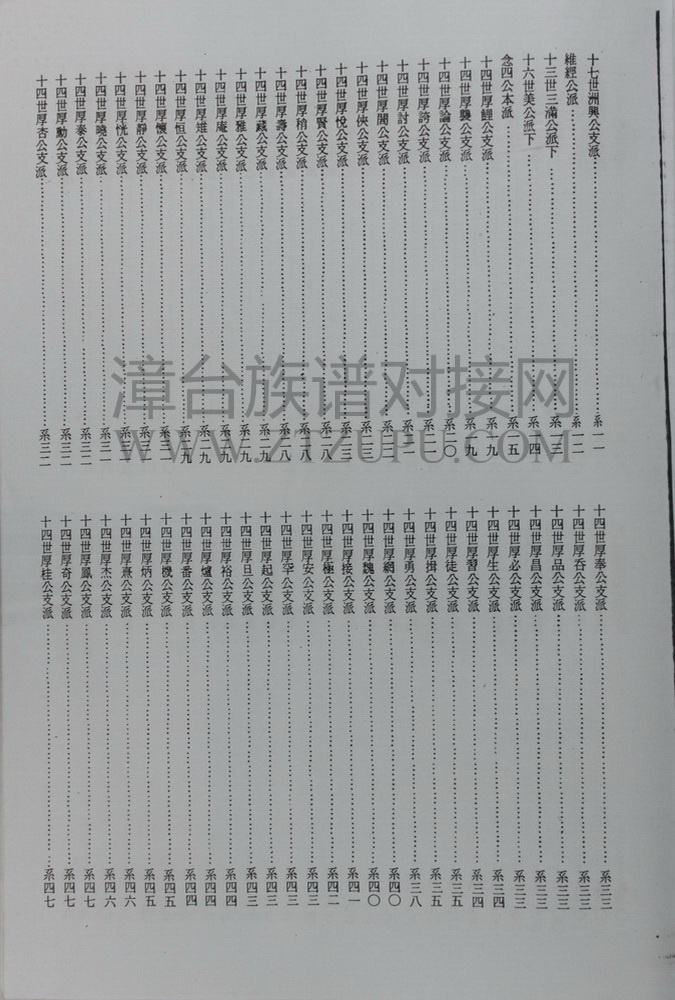 十七世洲興公支派……系一一
維經公派……系一二
十三世三滿公派下……系一三
十六世美公派下……系一四
念四公本派……系一五
十四世厚鯉公支派……系一九
十四世厚龔公支派……系一九
十四世厚論公支派……系二〇
十四世厚誇公支派……系二一
十四世厚討公支派……系二一
十四世厚閣公支派……系二三
十四世厚俠公支派……系二三
十四世厚悅公支派……系二三
十四世厚賢公支派……系二八
十四世厚稍公支派……系二八
十四世厚壽公支派……系二八
十四世厚藏公支派……系二九
十四世厚雅公支派……系二九
十四世厚庵公支派……系二九
十四世厚雄公支派……系二九
十四世厚恒公支派……系二九
十四世厚懷公支派……系三一
十四世厚靜公支派……系三一
十四世厚恍公支派……系三一
十四世厚曉公支派……系三一
十四世厚泰公支派……系三二
十四世厚勳公支派……系三二
十四世厚杏公支派……系三二
十四世厚奉公支派……系三三
十四世厚吞公支派……系三三
十四世厚品公支派……系三三
十四世厚昌公支派……系三三
十四世厚必公支派……系三三
十四世厚生公支派……系三四
十四世厚習公支派……系三四
十四世厚徒公支派……系三五
十四世厚揖公支派……系三五
十四世厚勇公支派……系三八
十四世厚網公支派……系四〇
十四世厚魏公支派……系四〇
十四世厚接公支派……系四一
十四世厚極公支派……系四二
十四世厚安公支派……系四三
十四世厚罕公支派……系四三
十四世厚起公支派……系四三
十四世厚旦公支派……系四三
十四世厚裕公支派……系四四
十四世厚爐公支派……系四四
十四世厚番公支派……系四四
十四世厚機公支派……系四五
十四世厚炳公支派……系四五
十四世厚燕公支派……系四六
十四世厚杰公支派……系四六
十四世厚鳳公支派……系四七
十四世厚奇公支派……系四七
十四世厚桂公支派……系四七
漳台族谱对接网
WWW.ZTZUPU.COM